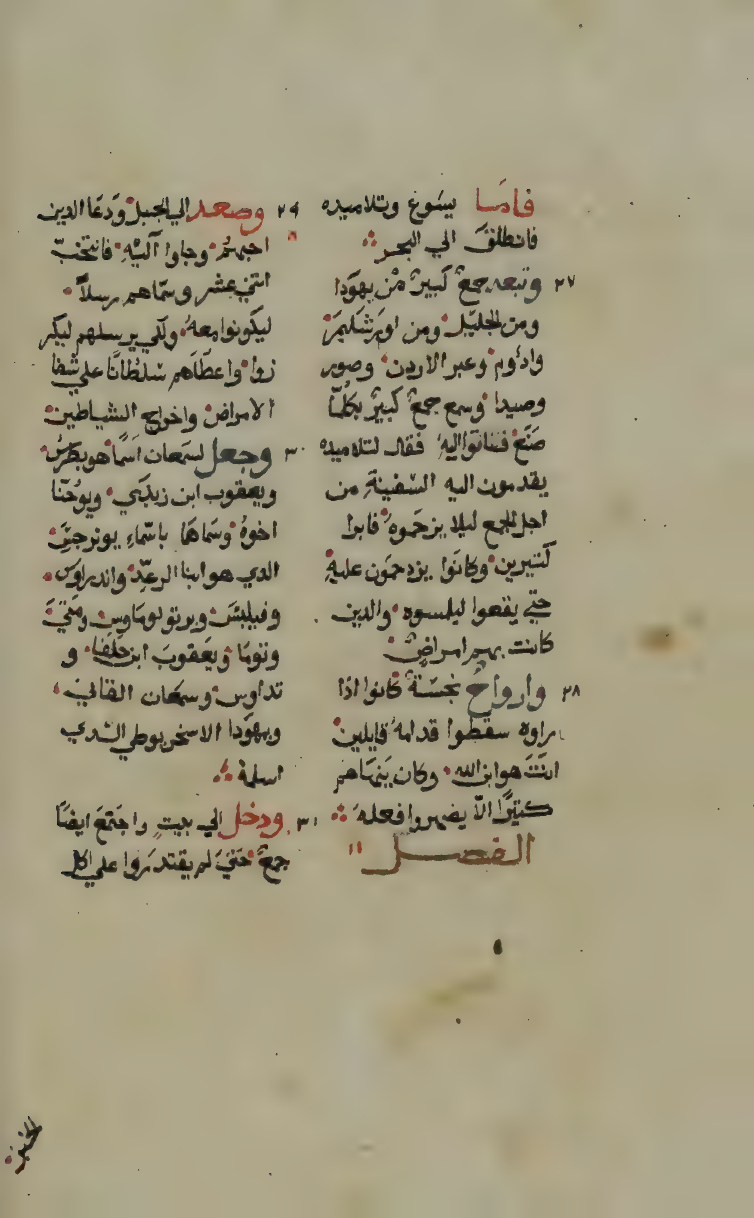 فامّا يسوع وتلاميده
فانطلق الي البحر
٢٧ وتبعه جمعٌ كبيرٌ من يهودا
ومن الجليل ومن اورشليم
وادوم وعبر الاردن وصور
وصيدا وسمع جمعٌ كبيرٌ بكلّما
صَنَعَ فاتوا اليه فقال لتلاميده
يقدمون اليه السفينة من
اجل الجمع ليلا يزحَموه فابرا
كتيرين وكانوا يزدحمون عليه
حتي يقعوا ليلمسوه والدين
كانت بهم امراضٌ
٢٨ وارواحٌ نجسَةٌ كانوا ادا
راوه سقطوا قدامهُ قايلين
انتَ هو ابن الله وكان ينهاهم
كتيرًا الّا يضهروا فعله
الفصل ١١
٢٩ وصعد الي الجبل ودعا الدين
احبهُم وجاوا اليْهِ فانتخبَ
اتني عشر وسمّاهم رسلاً
ليكونوا معهُ ولكي يرسلهم ليكر
زوا واعطَاهم سلطانًا علي شفا
الامراض واخراج الشياطين
٣٠ وجعل لسمعان اسمًا هو بطرس
ويعقوب ابن زبدي ويوحنّا
اخوهُ وسَماهما باسماءِ يونرجس
الدي هو ابنا الرعد واندراوس
وفيلبس وبرتولوماوس ومتي
وتوما ويعقوب ابن حلفا و
تداوس وسمعان القاني
ويهودا الاسخريوطي الدي
اسلمهُ
٣١ ودخل الي بيتٍ واجتمَعَ ايضًا
جمعٌ حتي لم يقتدروا علي اكل
الخبز